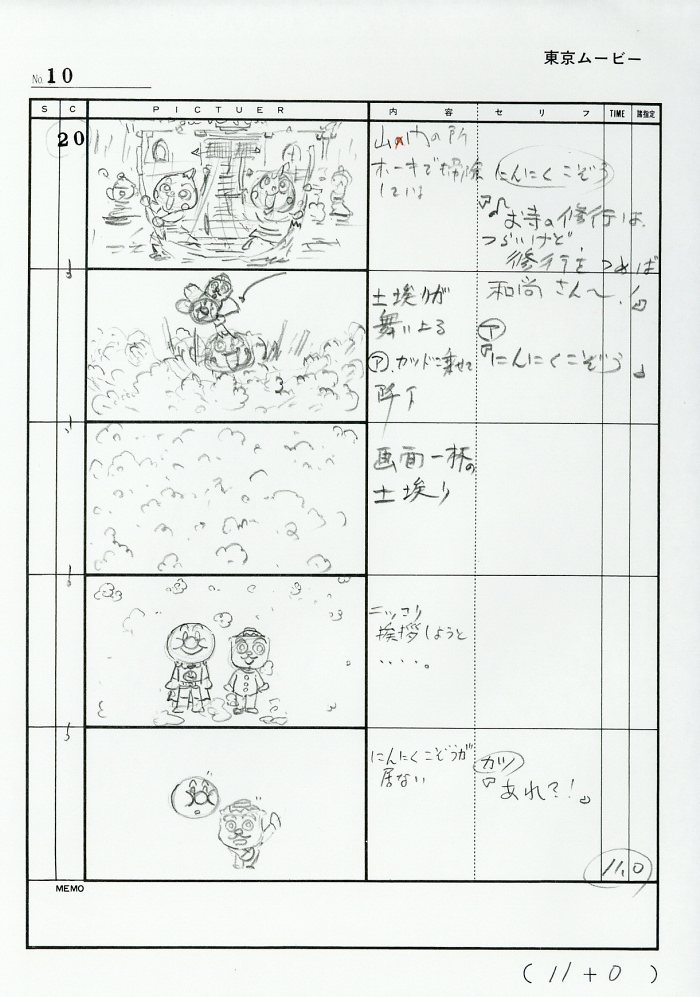 東京ムービー
No. 10
S C PICTUER 内容 セリフ TIME 諸指定
20
山内の所
ホーキで掃除
している
にんにくこぞう
『♪お寺の修行は
つらいけど、
修行をつめば
和尚さん〜!』
土埃りが
舞い上る
ア、カッドに乗せて
降下
ア
『にんにくこぞう』
画面一杯の
土埃り
ニッコリ
挨拶しようと
・・・・。
にんにくこぞうが
居ない
カツ
『あれ?!』
11,0
MEMO
(11+0)